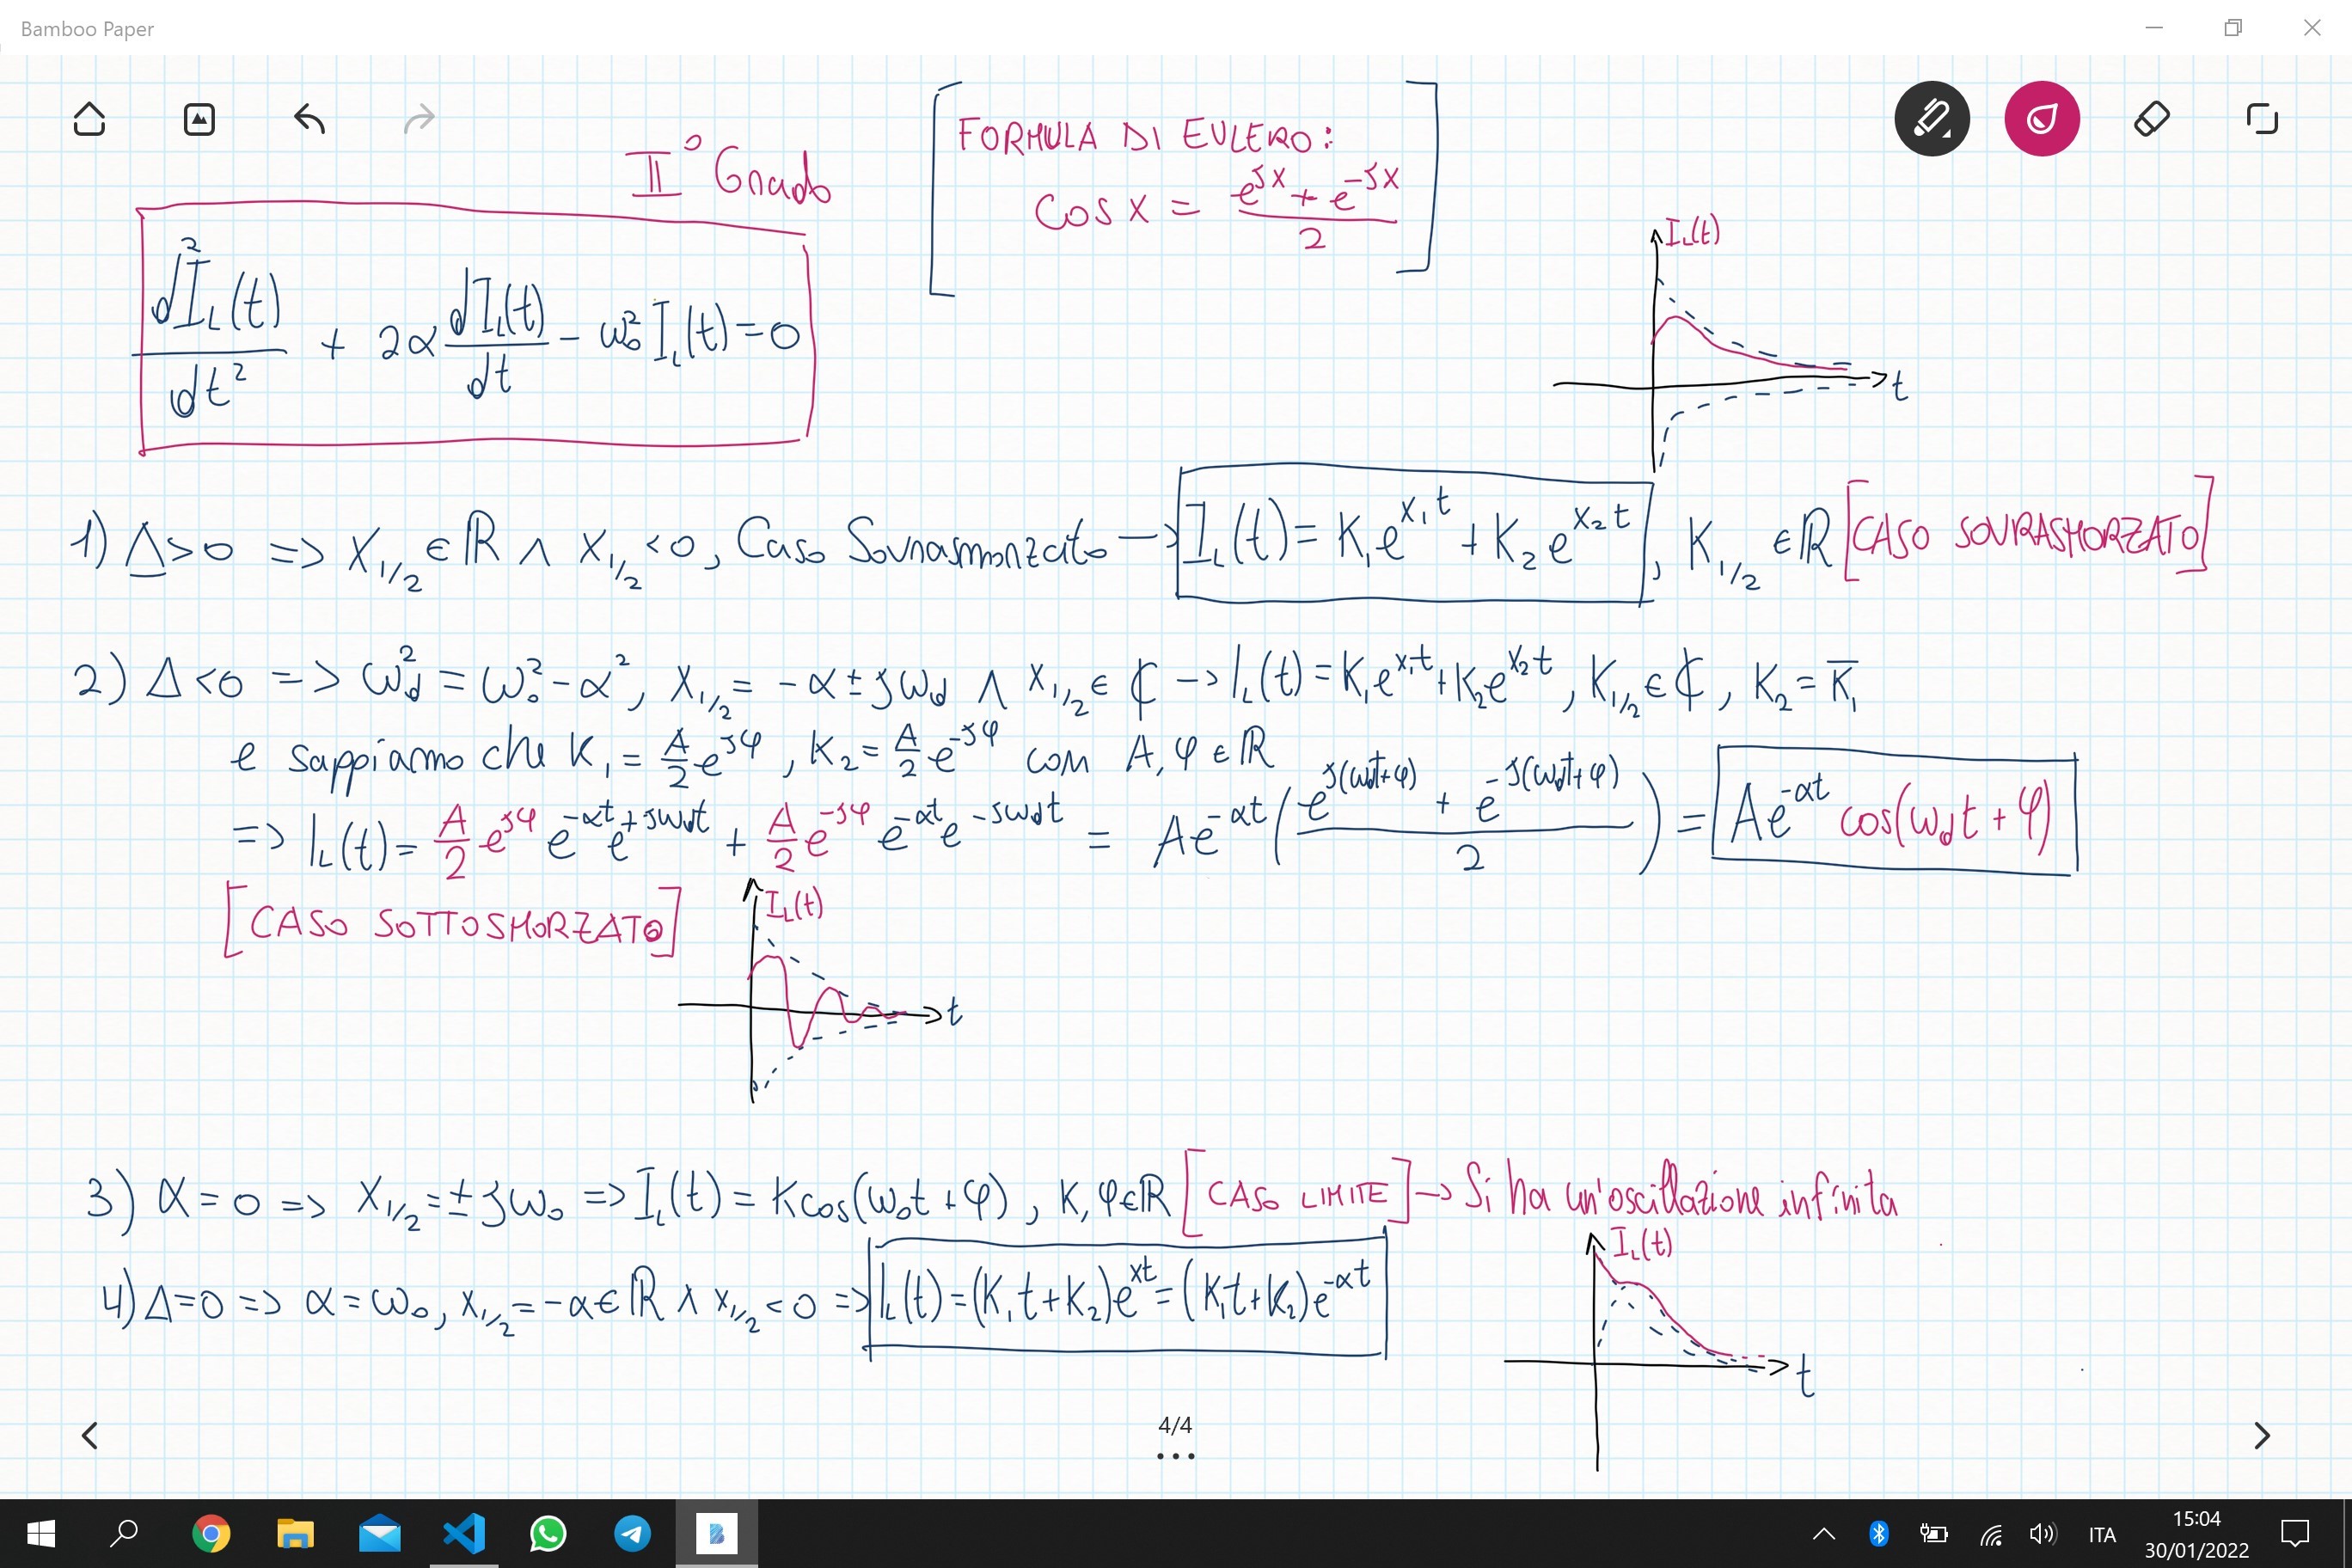 Bamboo Paper
II° Grado
FORMULA DI EULERO:
cos x = (e^{jx} + e^{-jx})/2
d²I_L(t)/dt² + 2α dI_L(t)/dt - ω₀² I_L(t) = 0
I_L(t)
t
1) Δ>0 => X_{1/2} ∈ ℝ ∧ X_{1/2} <0, Caso Sovrasmorzato -> I_L(t) = K₁e^{x₁t} + K₂e^{x₂t}, K_{1/2} ∈ ℝ [CASO SOVRASMORZATO]
2) Δ<0 => ω_d² = ω₀² - α², X_{1/2} = -α ± jω_d ∧ X_{1/2} ∈ ℂ -> I_L(t) = K₁e^{x₁t} + K₂e^{x₂t}, K_{1/2} ∈ ℂ, K₂ = K̄₁
e sappiamo che K₁ = A/2 e^{jφ}, K₂ = A/2 e^{-jφ} con A, φ ∈ ℝ
=> I_L(t) = A/2 e^{jφ} e^{-αt} e^{+jω_dt} + A/2 e^{-jφ} e^{-αt} e^{-jω_dt} = Ae^{-αt} ((e^{j(ω_dt+φ)} + e^{-j(ω_dt+φ)})/2) = Ae^{-αt} cos(ω_dt + φ)
[CASO SOTTOSMORZATO]
I_L(t)
t
3) α = 0 => X_{1/2} = ± jω₀ => I_L(t) = K cos(ω₀t + φ), K, φ ∈ ℝ [CASO LIMITE] -> Si ha un'oscillazione infinita
4) Δ=0 => α = ω₀, X_{1/2} = -α ∈ ℝ ∧ X_{1/2} < 0 => I_L(t) = (K₁t + K₂)e^{xt} = (K₁t + K₂)e^{-αt}
I_L(t)
t
4/4
ITA
15:04
30/01/2022